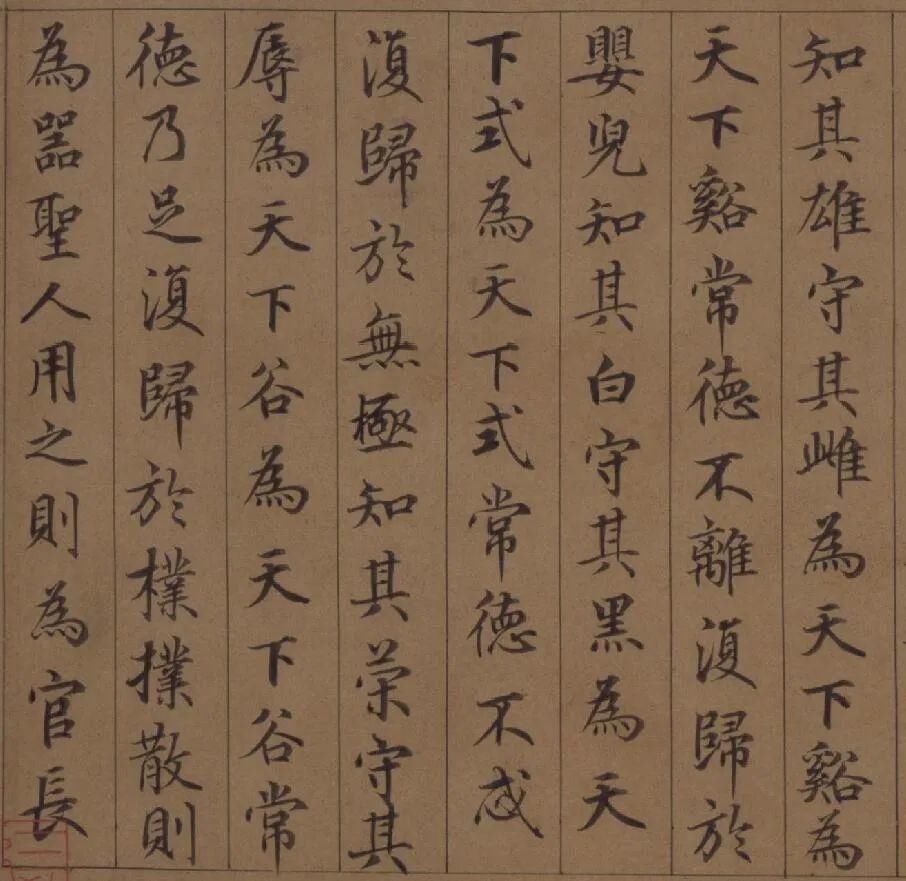 知其雄守其雌為天下谿為
天下谿常德不離復歸於
嬰兒知其白守其黑為天
下式為天下式常德不忒
復歸於無極知其榮守其
辱為天下谷為天下谷常
德乃足復歸於樸樸散則
為器聖人用之則為官長